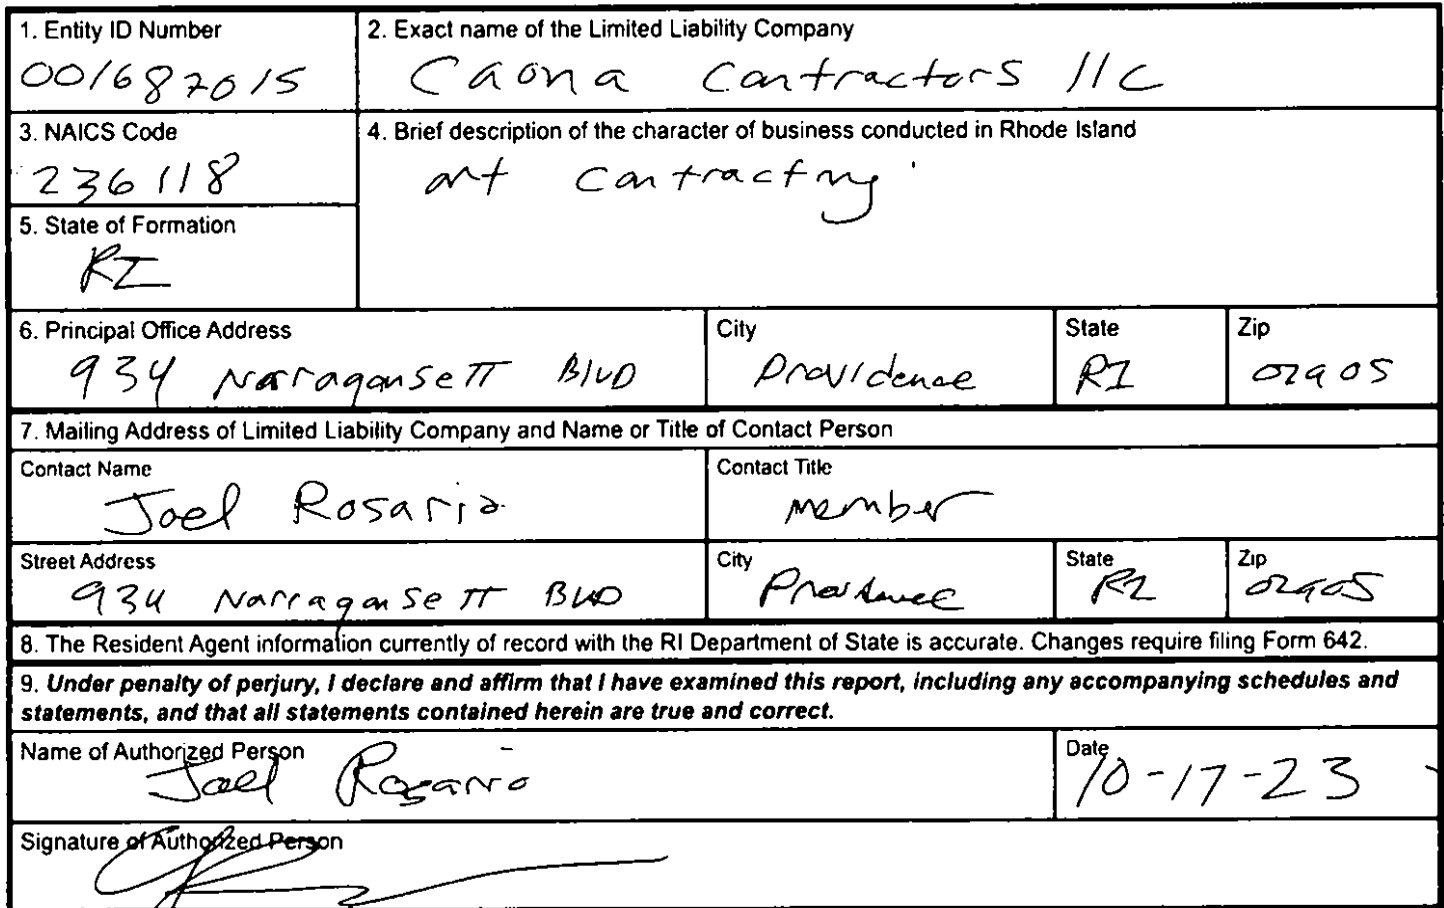 1. Entity ID Number
001687015
2. Exact name of the Limited Liability Company
Caona Contractors llc
3. NAICS Code
236118
4. Brief description of the character of business conducted in Rhode Island
art contracting
5. State of Formation
RI
6. Principal Office Address
934 Narragansett Blvd
City
Providence
State
RI
Zip
02905
7. Mailing Address of Limited Liability Company and Name or Title of Contact Person
Contact Name
Joel Rosario
Contact Title
member
Street Address
934 Narragansett Blvd
City
Providence
State
RI
Zip
02905
8. The Resident Agent information currently of record with the RI Department of State is accurate. Changes require filing Form 642.
9. Under penalty of perjury, I declare and affirm that I have examined this report, including any accompanying schedules and
statements, and that all statements contained herein are true and correct.
Name of Authorized Person
Joel Rosario
Date
10-17-23
Signature of Authorized Person